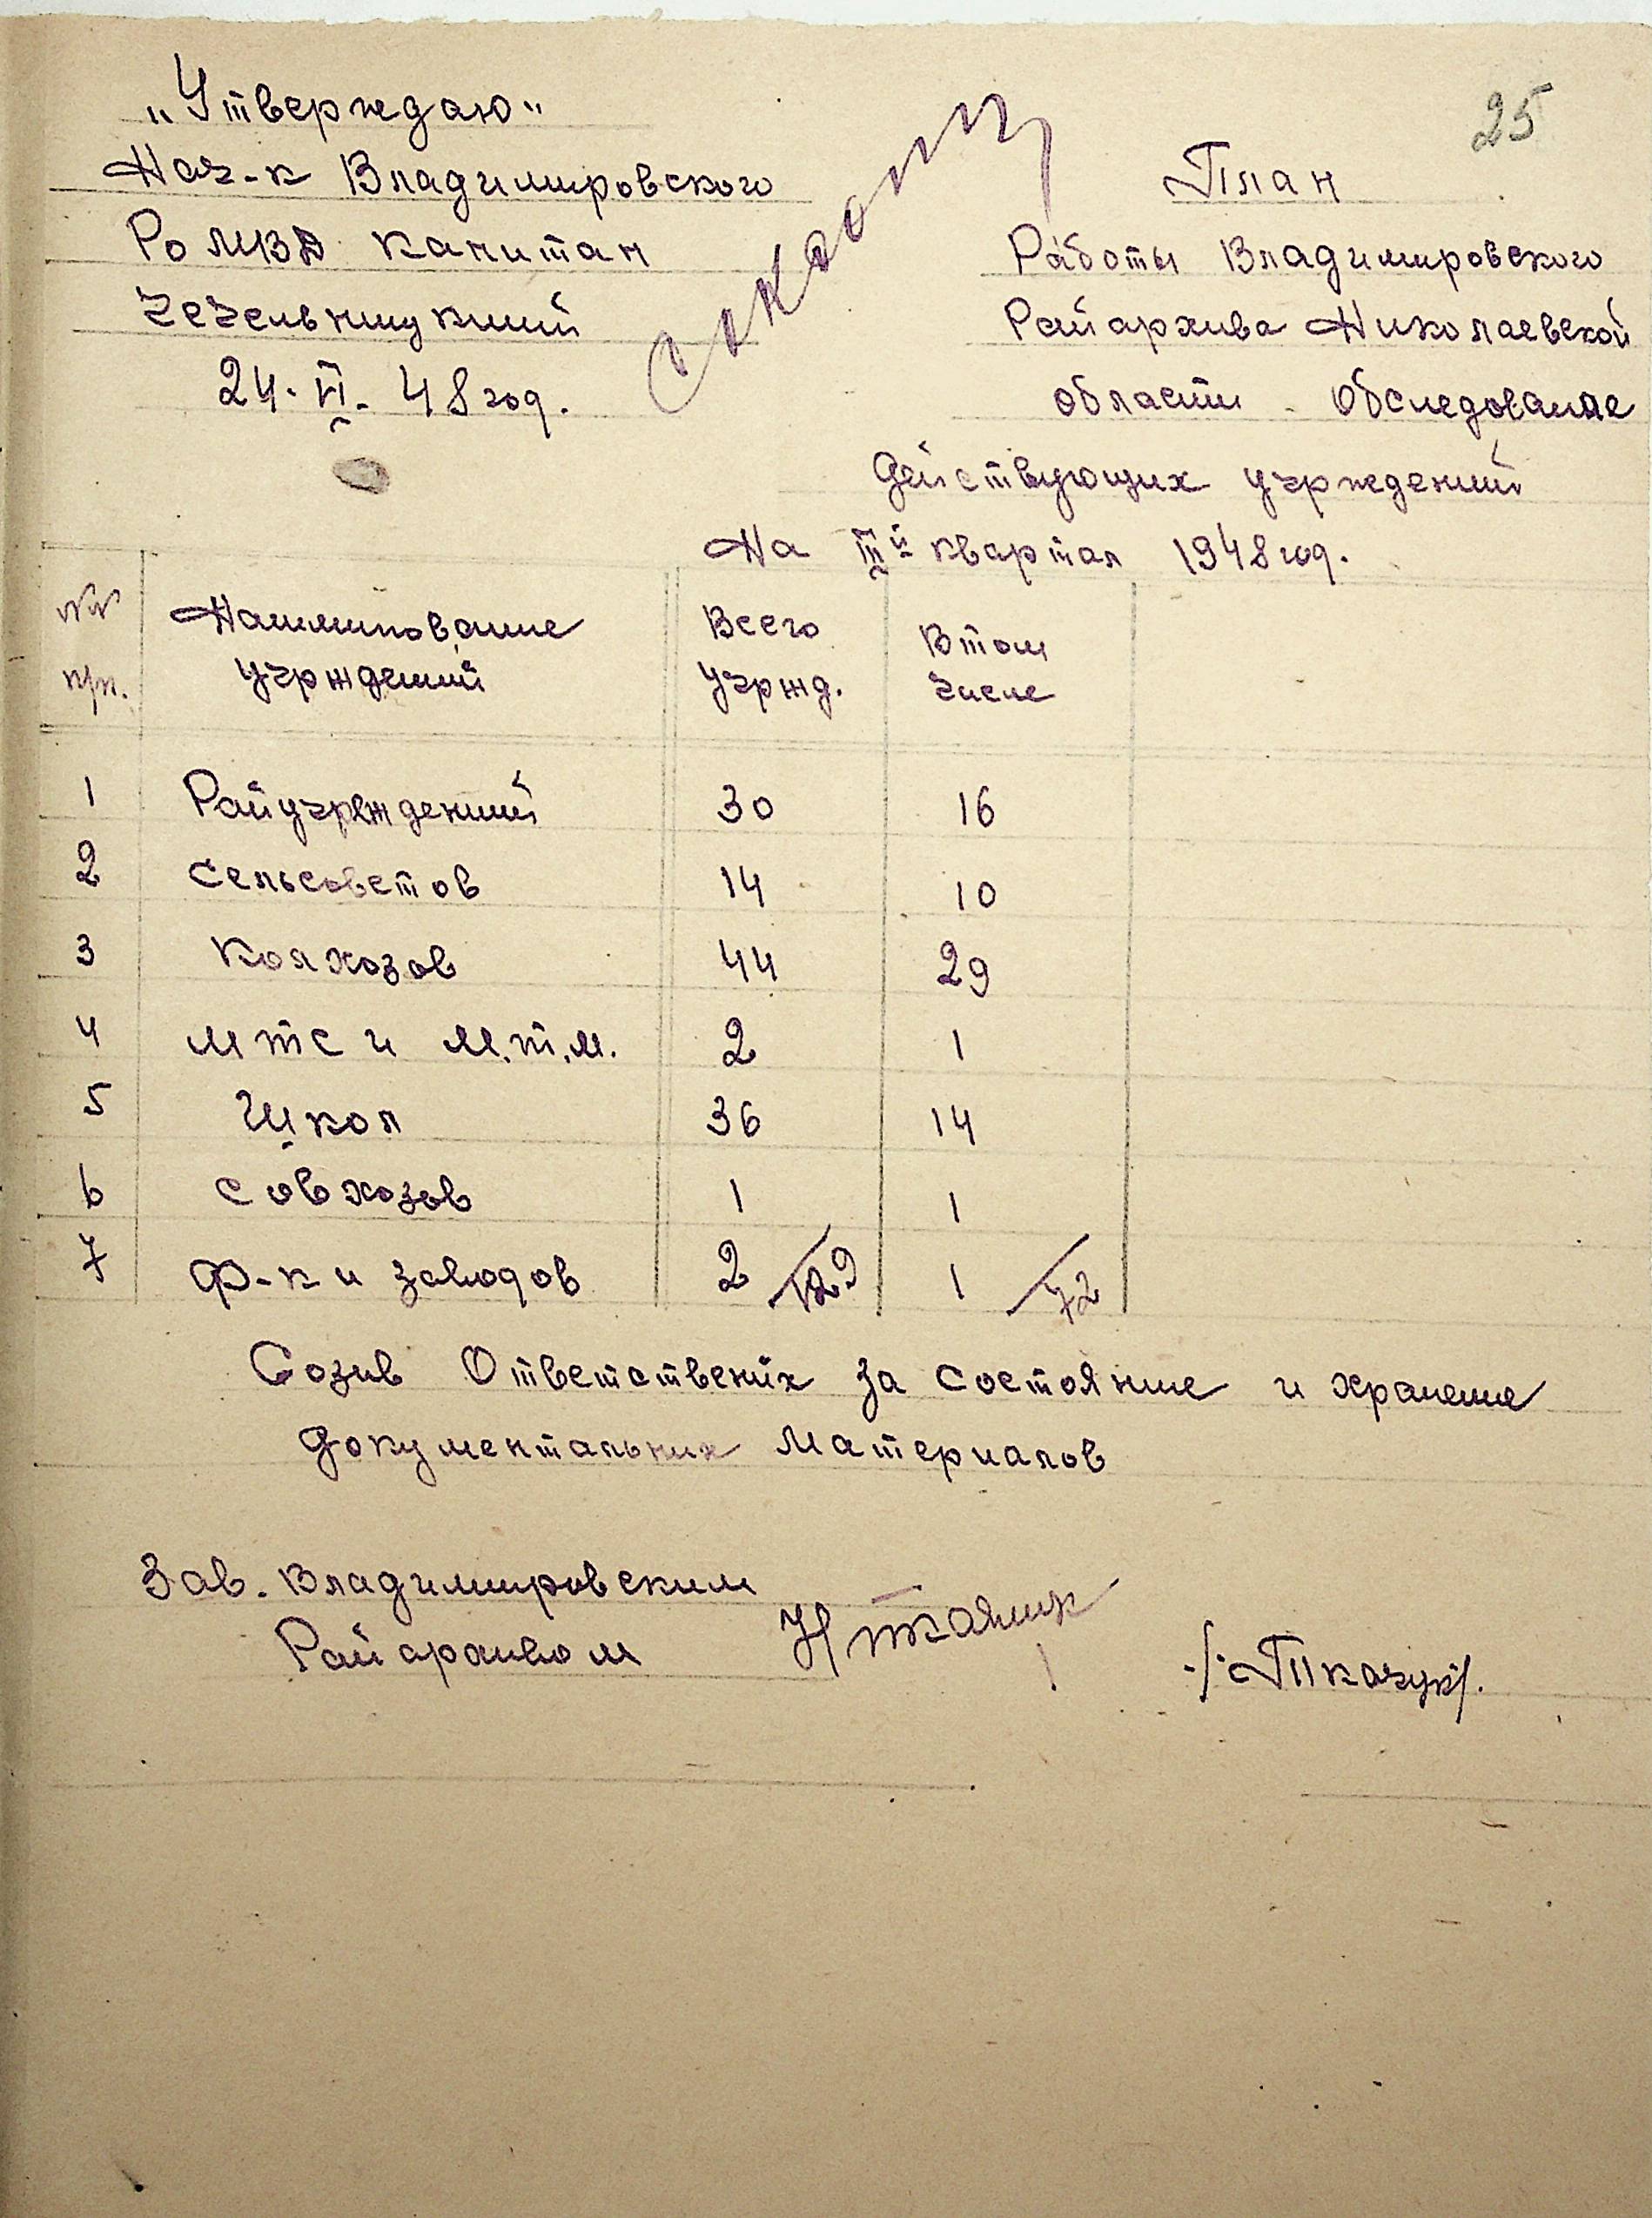 25
„Утверждаю“
Нач-к Владимировского
Ро МВД капитан
Чечельницкий
24·VI- 48 год.
План
Работы Владимировского
Райархива Николаевской
области обследование
действующих учреждений
На IIIй квартал 1948 год.
№№ п/п. Наименование учрждений Всего учржд. В том числе
1 Райучреждений 30 16
2 Сельсоветов 14 10
3 Колхозов 44 29
4 МТС и М.Т.М. 2 1
5 Школ 36 14
6 Совхозов 1 1
7 Ф-к и заводов 2 /129 1 /72
Созив Ответственіх за состояние и хранение
документальних материалов
Зав. Владимировским
Райархивом
-/Ткачук/.